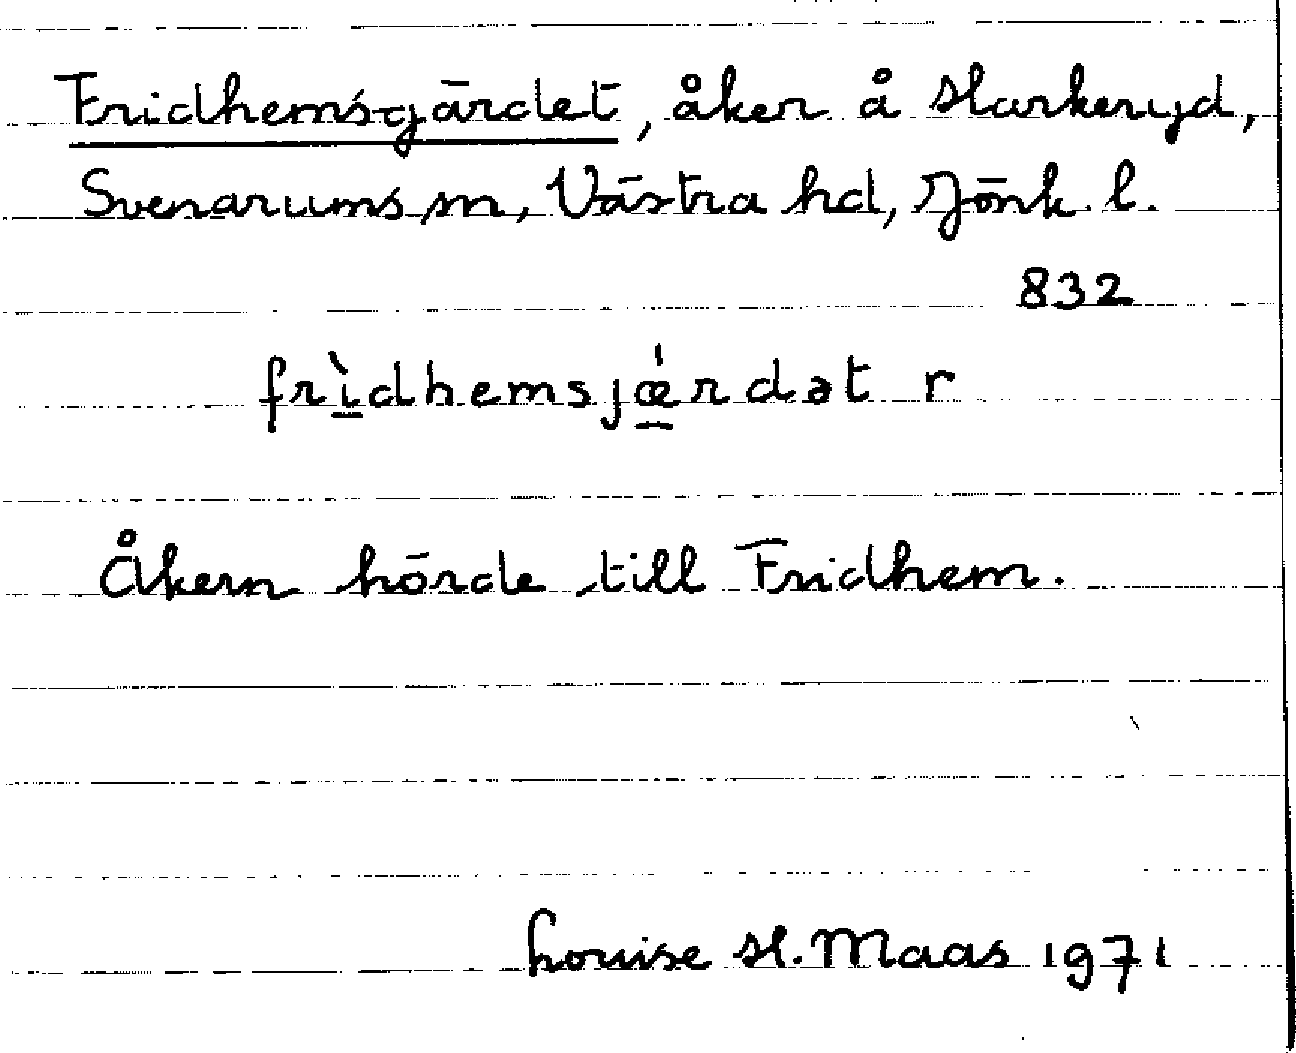 Fridhemsgärdet, åker å Harkeryd,
Svenarums sn, Västra hd, Jönk. l.
832
frìdhemsjǽrdət r
Åkern hörde till Fridhem.
Louise H. Maas 1971